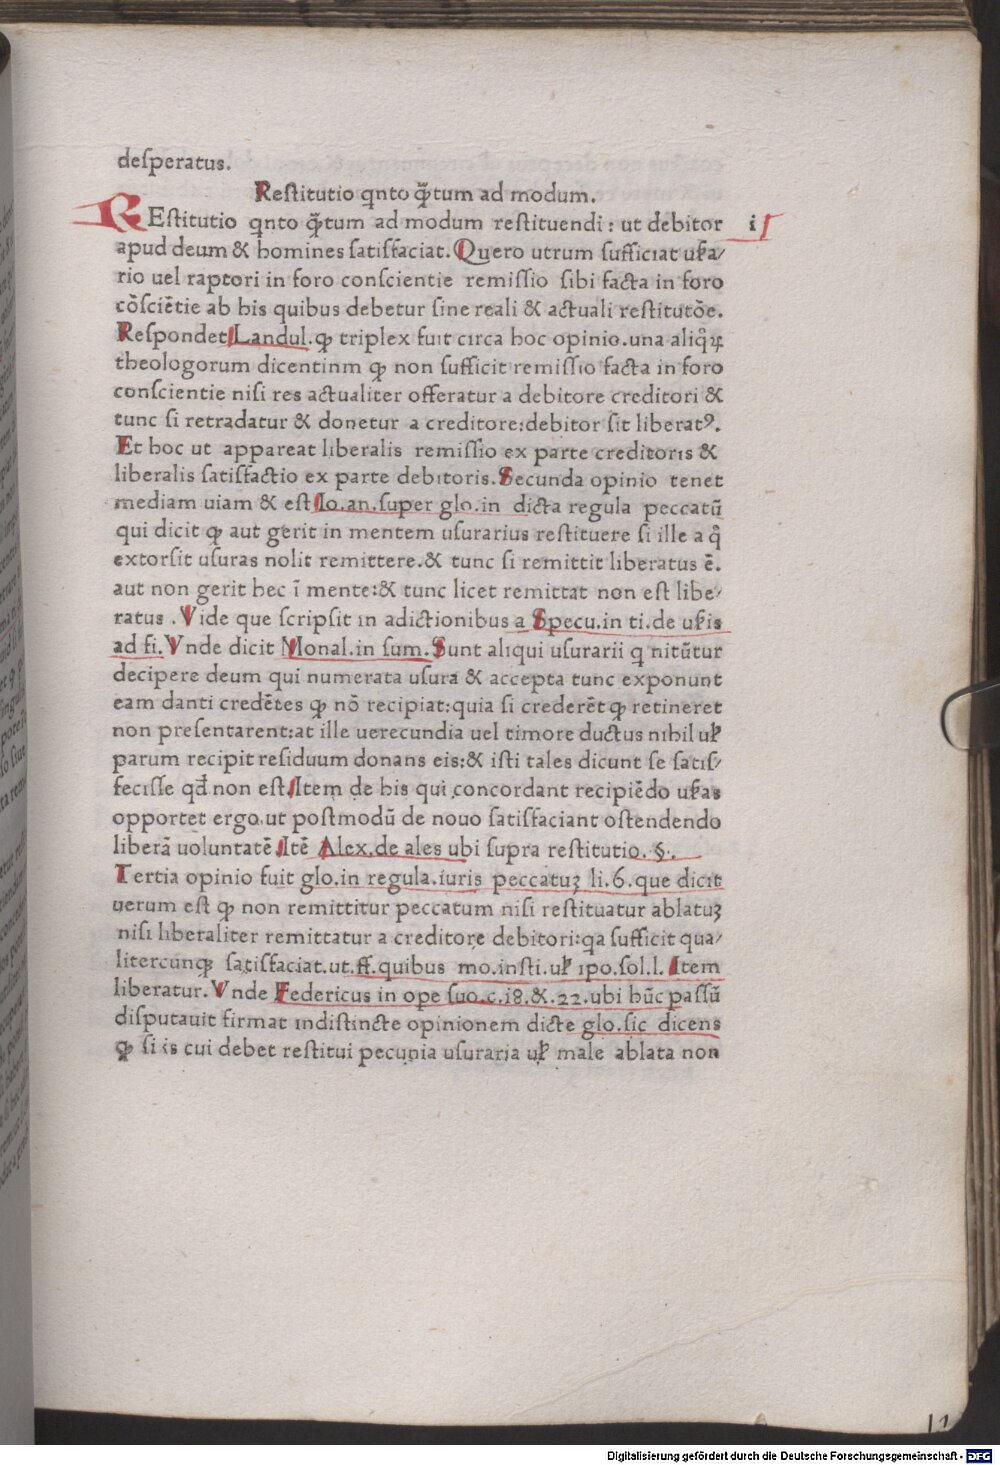 desperatus.
Restitutio qnto q̃tum ad modum.
REstitutio qnto q̃tum ad modum restituendi : ut debitor i
apud deum & homines satisfaciat. Quero utrum sufficiat usa/
rio uel raptori in foro conscientie remissio sibi facta in foro
cõsciẽtie ab his quibus debetur sine reali & actuali restitutõe.
Respondet Landul. ꝙ triplex fuit circa hoc opinio. una aliq̃ꝝ
theologorum dicentinm ꝙ non sufficit remissio facta in foro
conscientie nisi res actualiter offeratur a debitore creditori &
tunc si retradatur & donetur a creditore: debitor sit liberatꝰ.
Et hoc ut appareat liberalis remissio ex parte creditoris &
liberalis satisfactio ex parte debitoris. Secunda opinio tenet
mediam uiam & est Io. an. super glo. in dicta regula peccatũ
qui dicit ꝙ aut gerit in mentem usurarius restituere si ille a q̃
extorsit usuras nolit remittere. & tunc si remittit liberatus ẽ.
aut non gerit hec ĩ mente: & tunc licet remittat non est libe/
ratus . Vide que scripsit in adictionibus a Specu. in ti. de usis
ad fi. Vnde dicit Monal. in sum. Sunt aliqui usurarii q nitũtur
decipere deum qui numerata usura & accepta tunc exponunt
eam danti credẽtes ꝙ nõ recipiat: quia si crederẽt ꝙ retineret
non presentarent: at ille uerecundia uel timore ductus nihil uł
parum recipit residuum donans eis: & isti tales dicunt se satis/
fecisse qđ non est. Item de his qui concordant recipiẽdo usas
opportet ergo ut postmodũ de nouo satisfaciant ostendendo
liberã uoluntatẽ Itẽ Alex. de ales ubi supra restitutio. §.
Tertia opinio fuit glo. in regula. iuris peccatuꝫ li. 6. que dicit
uerum est ꝙ non remittitur peccatum nisi restituatur ablatuꝫ
nisi liberaliter remittatur a creditore debitori: qa sufficit qua/
litercunqꝫ satisfaciat. ut. ff. quibus mo. insti. uł ipo. sol. l. Item
liberatur. Vnde Federicus in ope suo. c. i8. &. 22. ubi hũc passũ
disputauit firmat indistincte opinionem dicte glo. sic dicens
ꝙ si is cui debet restitui pecunia usuraria uł male ablata non
Digitalisierung gefördert durch die Deutsche Forschungsgemeinschaft - DFG